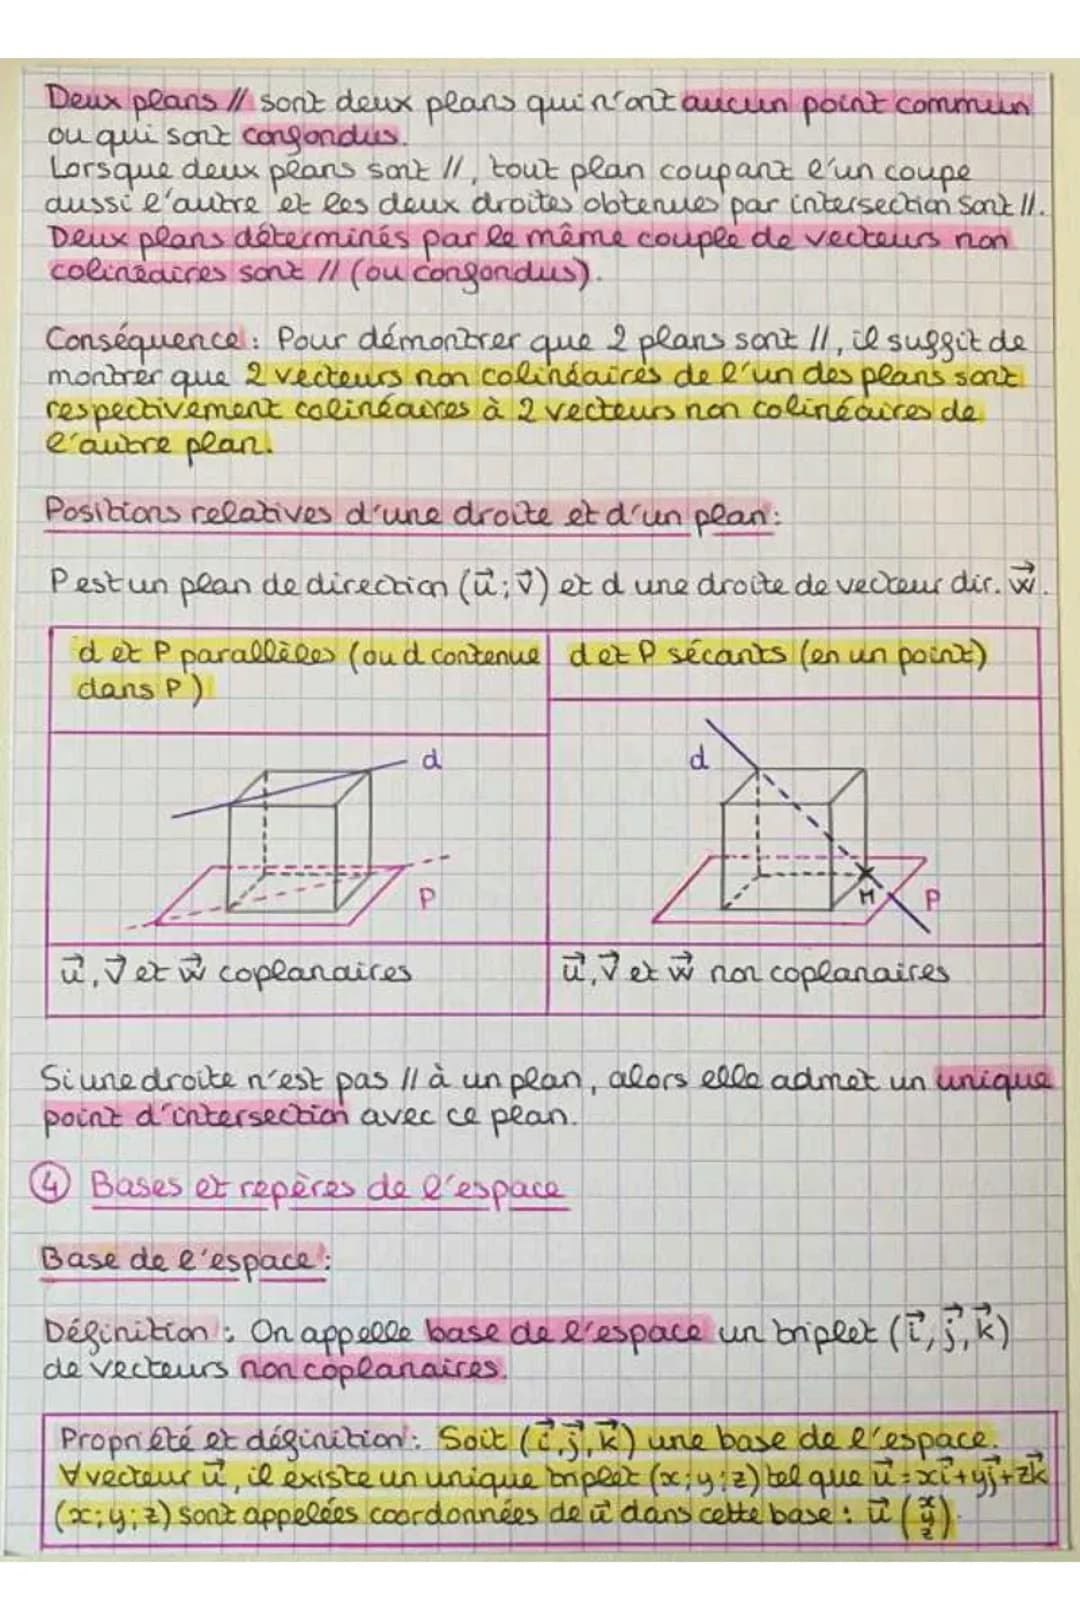 Deux plans // sont deux plans qui n'ont aucun point commun
ou qui sont confondus.
Lorsque deux plans sont //, tout plan coupant l'un coupe
aussi l'autre et les deux droites obtenues par intersection sont //.
Deux plans déterminés par le même couple de vecteurs non
colinéaires sont // (ou confondus).
Conséquence : Pour démontrer que 2 plans sont //, il suffit de
montrer que 2 vecteurs non colinéaires de l'un des plans sont
respectivement colinéaires à 2 vecteurs non colinéaires de
l'autre plan.
Positions relatives d'une droite et d'un plan :
P est un plan de direction (u⃗ ; v⃗) et d une droite de vecteur dir. w⃗.
d et P parallèles (ou d contenue
dans P)
d et P sécants (en un point)
d
P
d
M
P
u⃗, v⃗ et w⃗ coplanaires
u⃗, v⃗ et w⃗ non coplanaires
Si une droite n'est pas // à un plan, alors elle admet un unique
point d'intersection avec ce plan.
④ Bases et repères de l'espace
Base de l'espace :
Définition : On appelle base de l'espace un triplet (i⃗, j⃗, k⃗)
de vecteurs non coplanaires.
Propriété et définition : Soit (i⃗, j⃗, k⃗) une base de l'espace.
∀ vecteur u⃗, il existe un unique triplet (x ; y ; z) tel que u⃗ = xi⃗ + yj⃗ + zk⃗
(x ; y ; z) sont appelées coordonnées de u⃗ dans cette base : u⃗ (x y z).